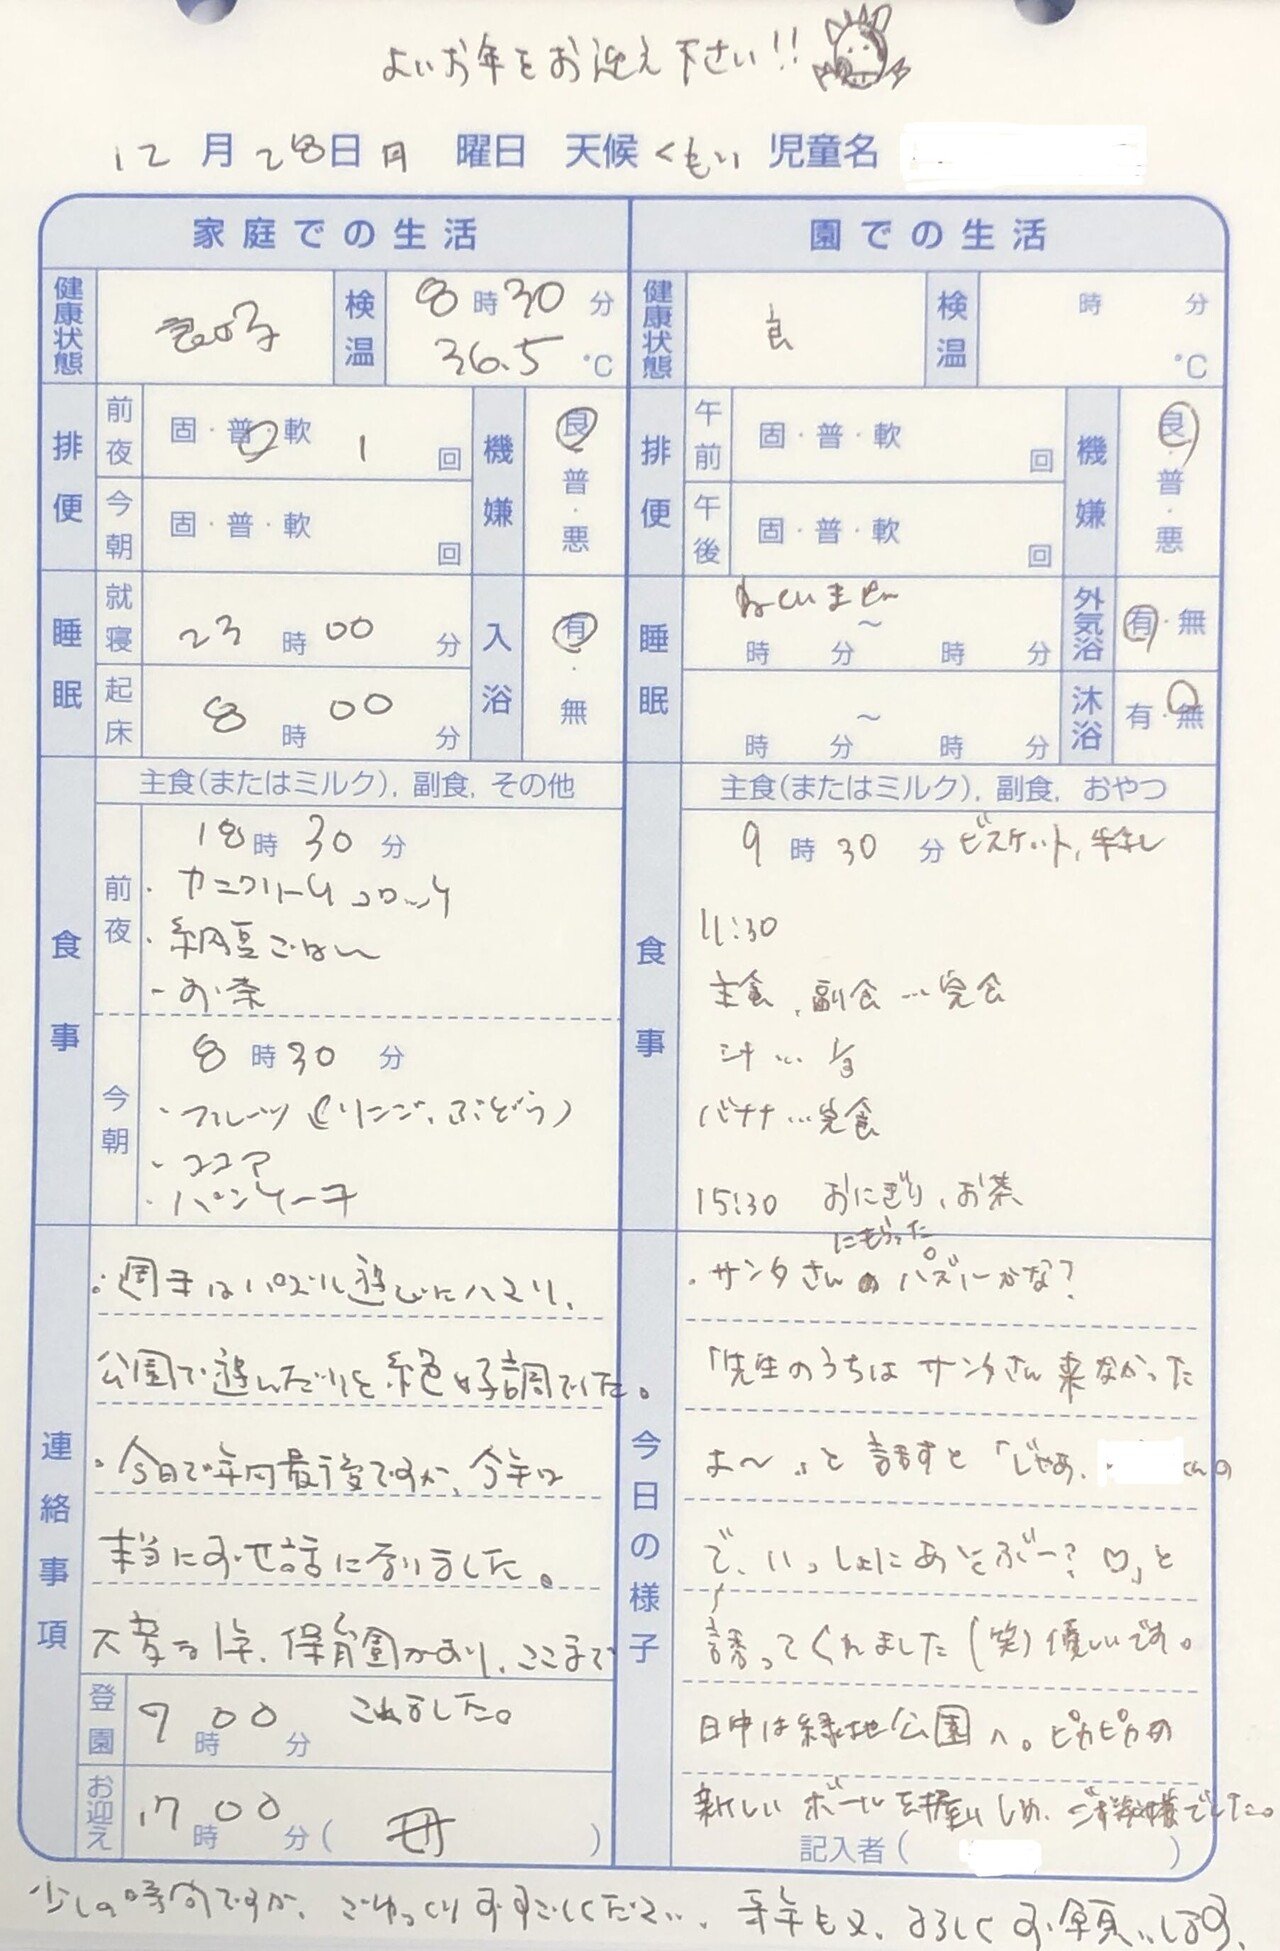 よいお年をお迎え下さい!!
12月28日月曜日 天候くもり 児童名
家庭での生活
健康状態 良好 検温 8時30分
36.5℃
排便 前夜 固・普・軟 1回 機嫌 良・普・悪
今朝 固・普・軟 回
睡眠 就寝 23時00分 入浴 有・無
起床 8時00分
食事 主食(またはミルク), 副食, その他
前夜 18時30分
・カニクリームコロッケ
・納豆ごはん
・お茶
今朝 8時30分
・フルーツ(リンゴ、ぶどう)
・ココア
・パンケーキ
連絡事項
・週末はパズル遊びにハマり、
公園で遊んだりと絶好調でした。
・今日で年内最後ですが、今年は
本当にお世話になりました。
大変な1年、保育園があり、ここまで
これました。
登園 9時00分
お迎え 17時00分(母)
園での生活
健康状態 良 検温 時 分
℃
排便 午前 固・普・軟 回 機嫌 良・普・悪
午後 固・普・軟 回
睡眠 ねていません
時 分 〜 時 分 外気浴 有・無
時 分 〜 時 分 沐浴 有・無
食事 主食(またはミルク), 副食, おやつ
9時30分 ビスケット, 牛乳
11:30
主食、副食…完食
汁…1/3
バナナ…完食
15:30 おにぎり、お茶
今日の様子
・サンタさんにもらったパズルかな?
「先生のうちはサンタさん来なかった
よ〜」と話すと「じゃあ、くんの
で、いっしょにあそぶー?♡」と
誘ってくれました(笑)優しいです。
日中は緑地公園へ。ピカピカの
新しいボールを握りしめ、ご満悦様でした。
記入者( )
少しの時間ですが、ごゆっくりおすごしください。来年も又、よろしくお願いします。